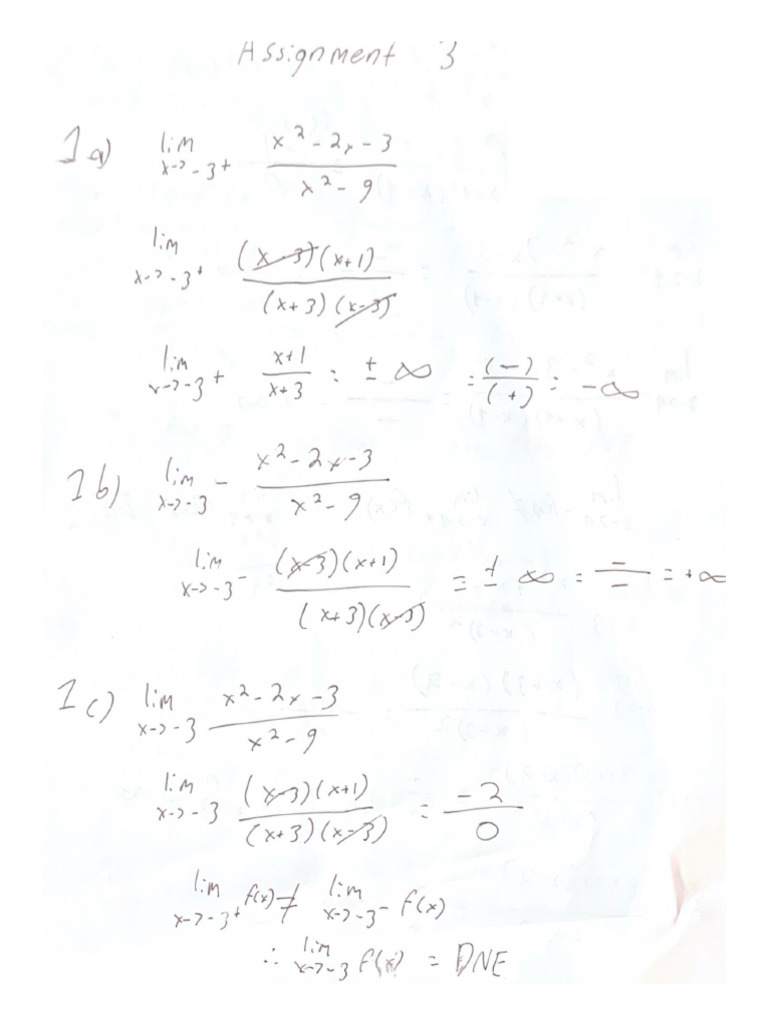 Assignment 3
1a) lim x->-3+ (x^2 - 2x - 3)/(x^2 - 9)
lim x->-3+ ((x-3)(x+1))/((x+3)(x-3))
lim x->-3+ (x+1)/(x+3) = ± ∞ = (-)/(+) = -∞
1b) lim x->-3 - (x^2 - 2x - 3)/(x^2 - 9)
lim x->-3- ((x-3)(x+1))/((x+3)(x-3)) = ± ∞ = -/- = +∞
1c) lim x->-3 (x^2 - 2x - 3)/(x^2 - 9)
lim x->-3 ((x-3)(x+1))/((x+3)(x-3)) = -2/0
lim x->-3+ f(x) ≠ lim x->-3- f(x)
∴ lim x->-3 f(x) = DNE